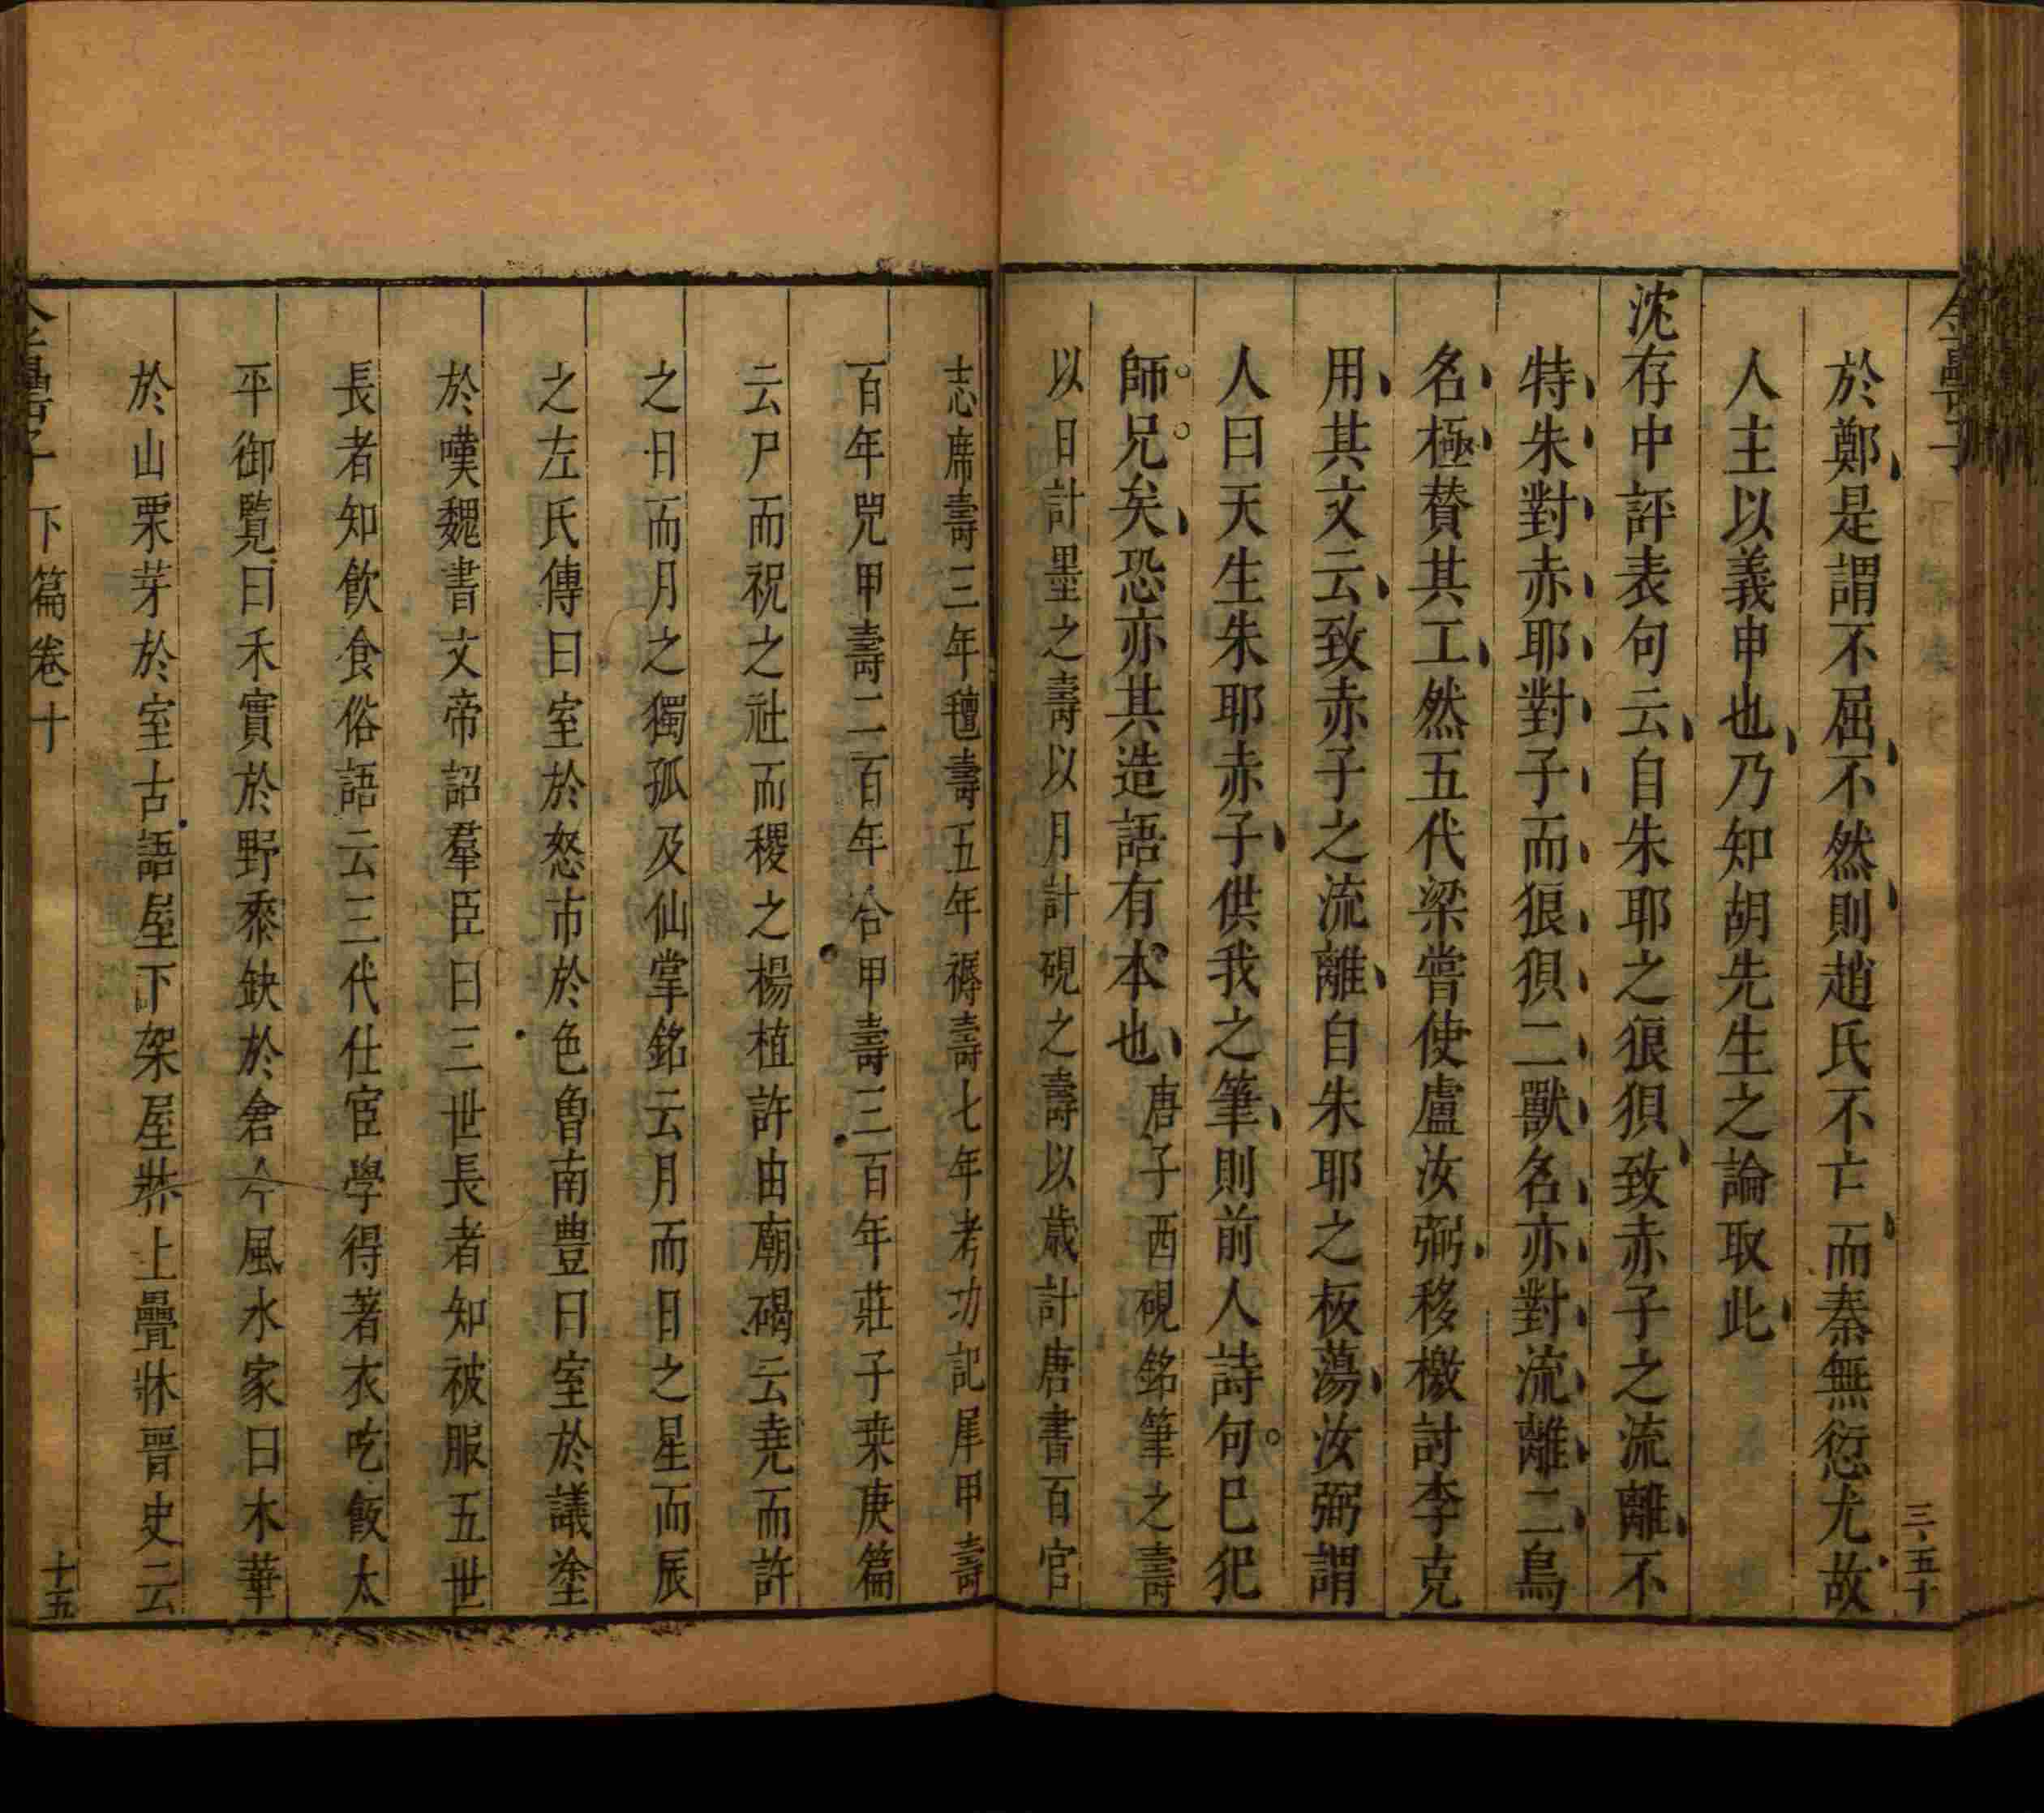 於鄭是謂不屈不然則趙氏不亡而秦無愆尤故
人主以義申也乃知胡先生之論取此
沈存中評表句云自朱耶之狼狽致赤子之流離不
特朱對赤耶對子而狼狽二獸名亦對流離二鳥
名極贊其工然五代梁嘗使盧汝弼移檄討李克
用其文云致赤子之流離自朱耶之板蕩汝弼謂
人曰天生朱耶赤子供我之筆則前人詩句已犯
師兄矣恐亦其造語有本也唐子西硯銘筆之壽
以日計墨之壽以月計硯之壽以歲計唐書百官
志席壽三年氊壽五年褥壽七年考功記犀甲壽
百年兕甲壽二百年合甲壽三百年莊子桒庚篇
云尸而祝之社而稷之楊植許由廟碣云堯而許
之日而月之獨孤及仙掌銘云月而日之星而辰
之左氏傳曰室於怒市於色魯南豊曰室於議塗
於嘆魏書文帝詔羣臣曰三世長者知被服五世
長者知飲食俗語云三代仕宦學得著衣吃飯太
平御覽曰禾實於野黍缺於倉今風水家曰木華
於山栗芽於室古語屋下架屋牀上疊牀晉史云
金罍子 下篇卷十 十五